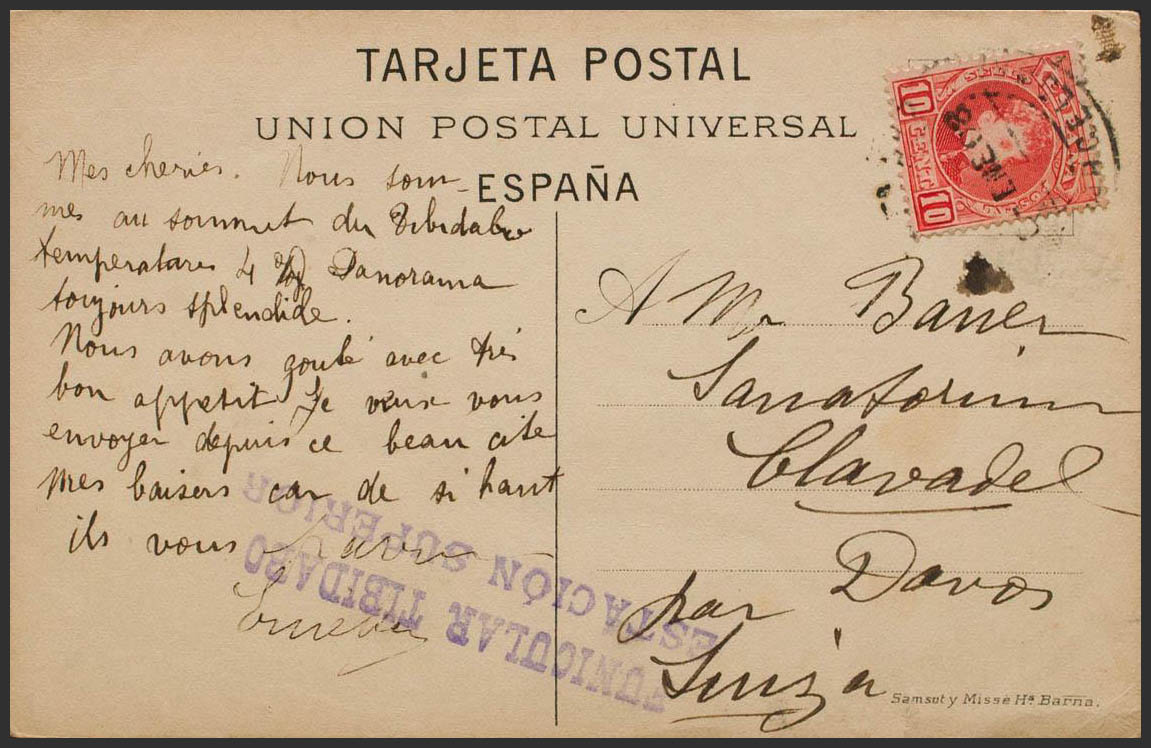 TARJETA POSTAL
UNION POSTAL UNIVERSAL
ESPAÑA
Mes cheries. Nous som-
mes au sommet du Tibidabo
temperature 4 Panorama
toujours splendide.
Nous avons gouté avec très
bon appetit Je veux vous
envoyer depuis ce beau cite
mes baisers car de si haut
ils vous
10 CENT 10
A Mr Bauer
Sanatorium
Clavadel
Davos
par
Suiza
FUNICULAR TIBIDABO
ESTACIÓN SUPERIOR
Samsot y Missé Hs. Barna.